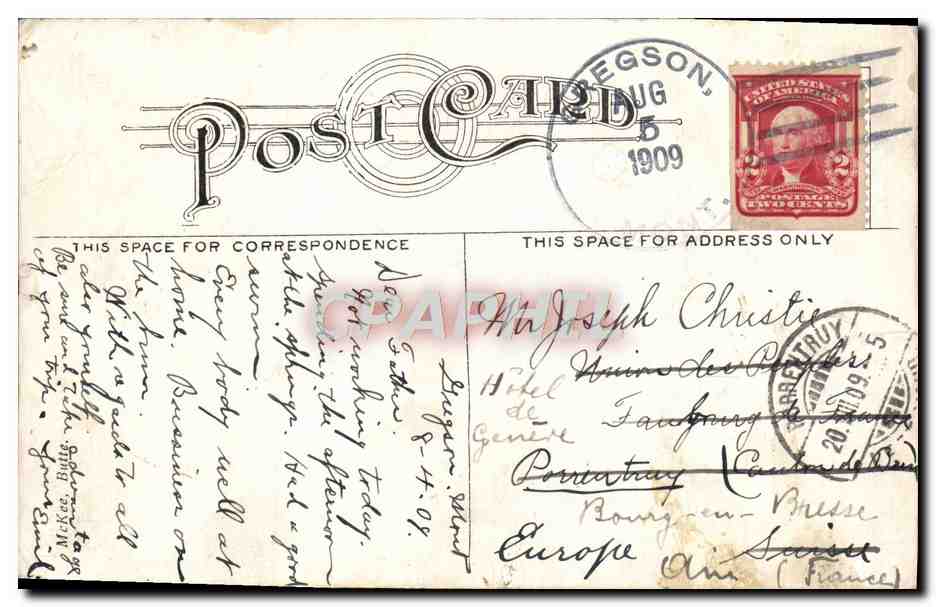 POST CARD
GREGSON,
AUG
5
1909
UNITED STATES
OF AMERICA
2 2
POSTAGE
TWO CENTS
THIS SPACE FOR CORRESPONDENCE
THIS SPACE FOR ADDRESS ONLY
Gregson. Mont
8-4.09.
Dear Father.
Not working today.
Spending the afternoon
at the springs. Had a good
swim
Every body well at
home. Bussiness on
the
With regards to all
also yourself
Be sure and take advantage
of your trip. Yours Emil
McKee, Butte
Mr Joseph Christie
Union des Peuples
Hôtel
de
Genève
Faubourg France
Porrentruy (Canton de Bern
Bourg-en-Bresse
Europe Suisse
Ain (France)
PORRENTRUY
20.VIII.09. 5
CPAPHIL